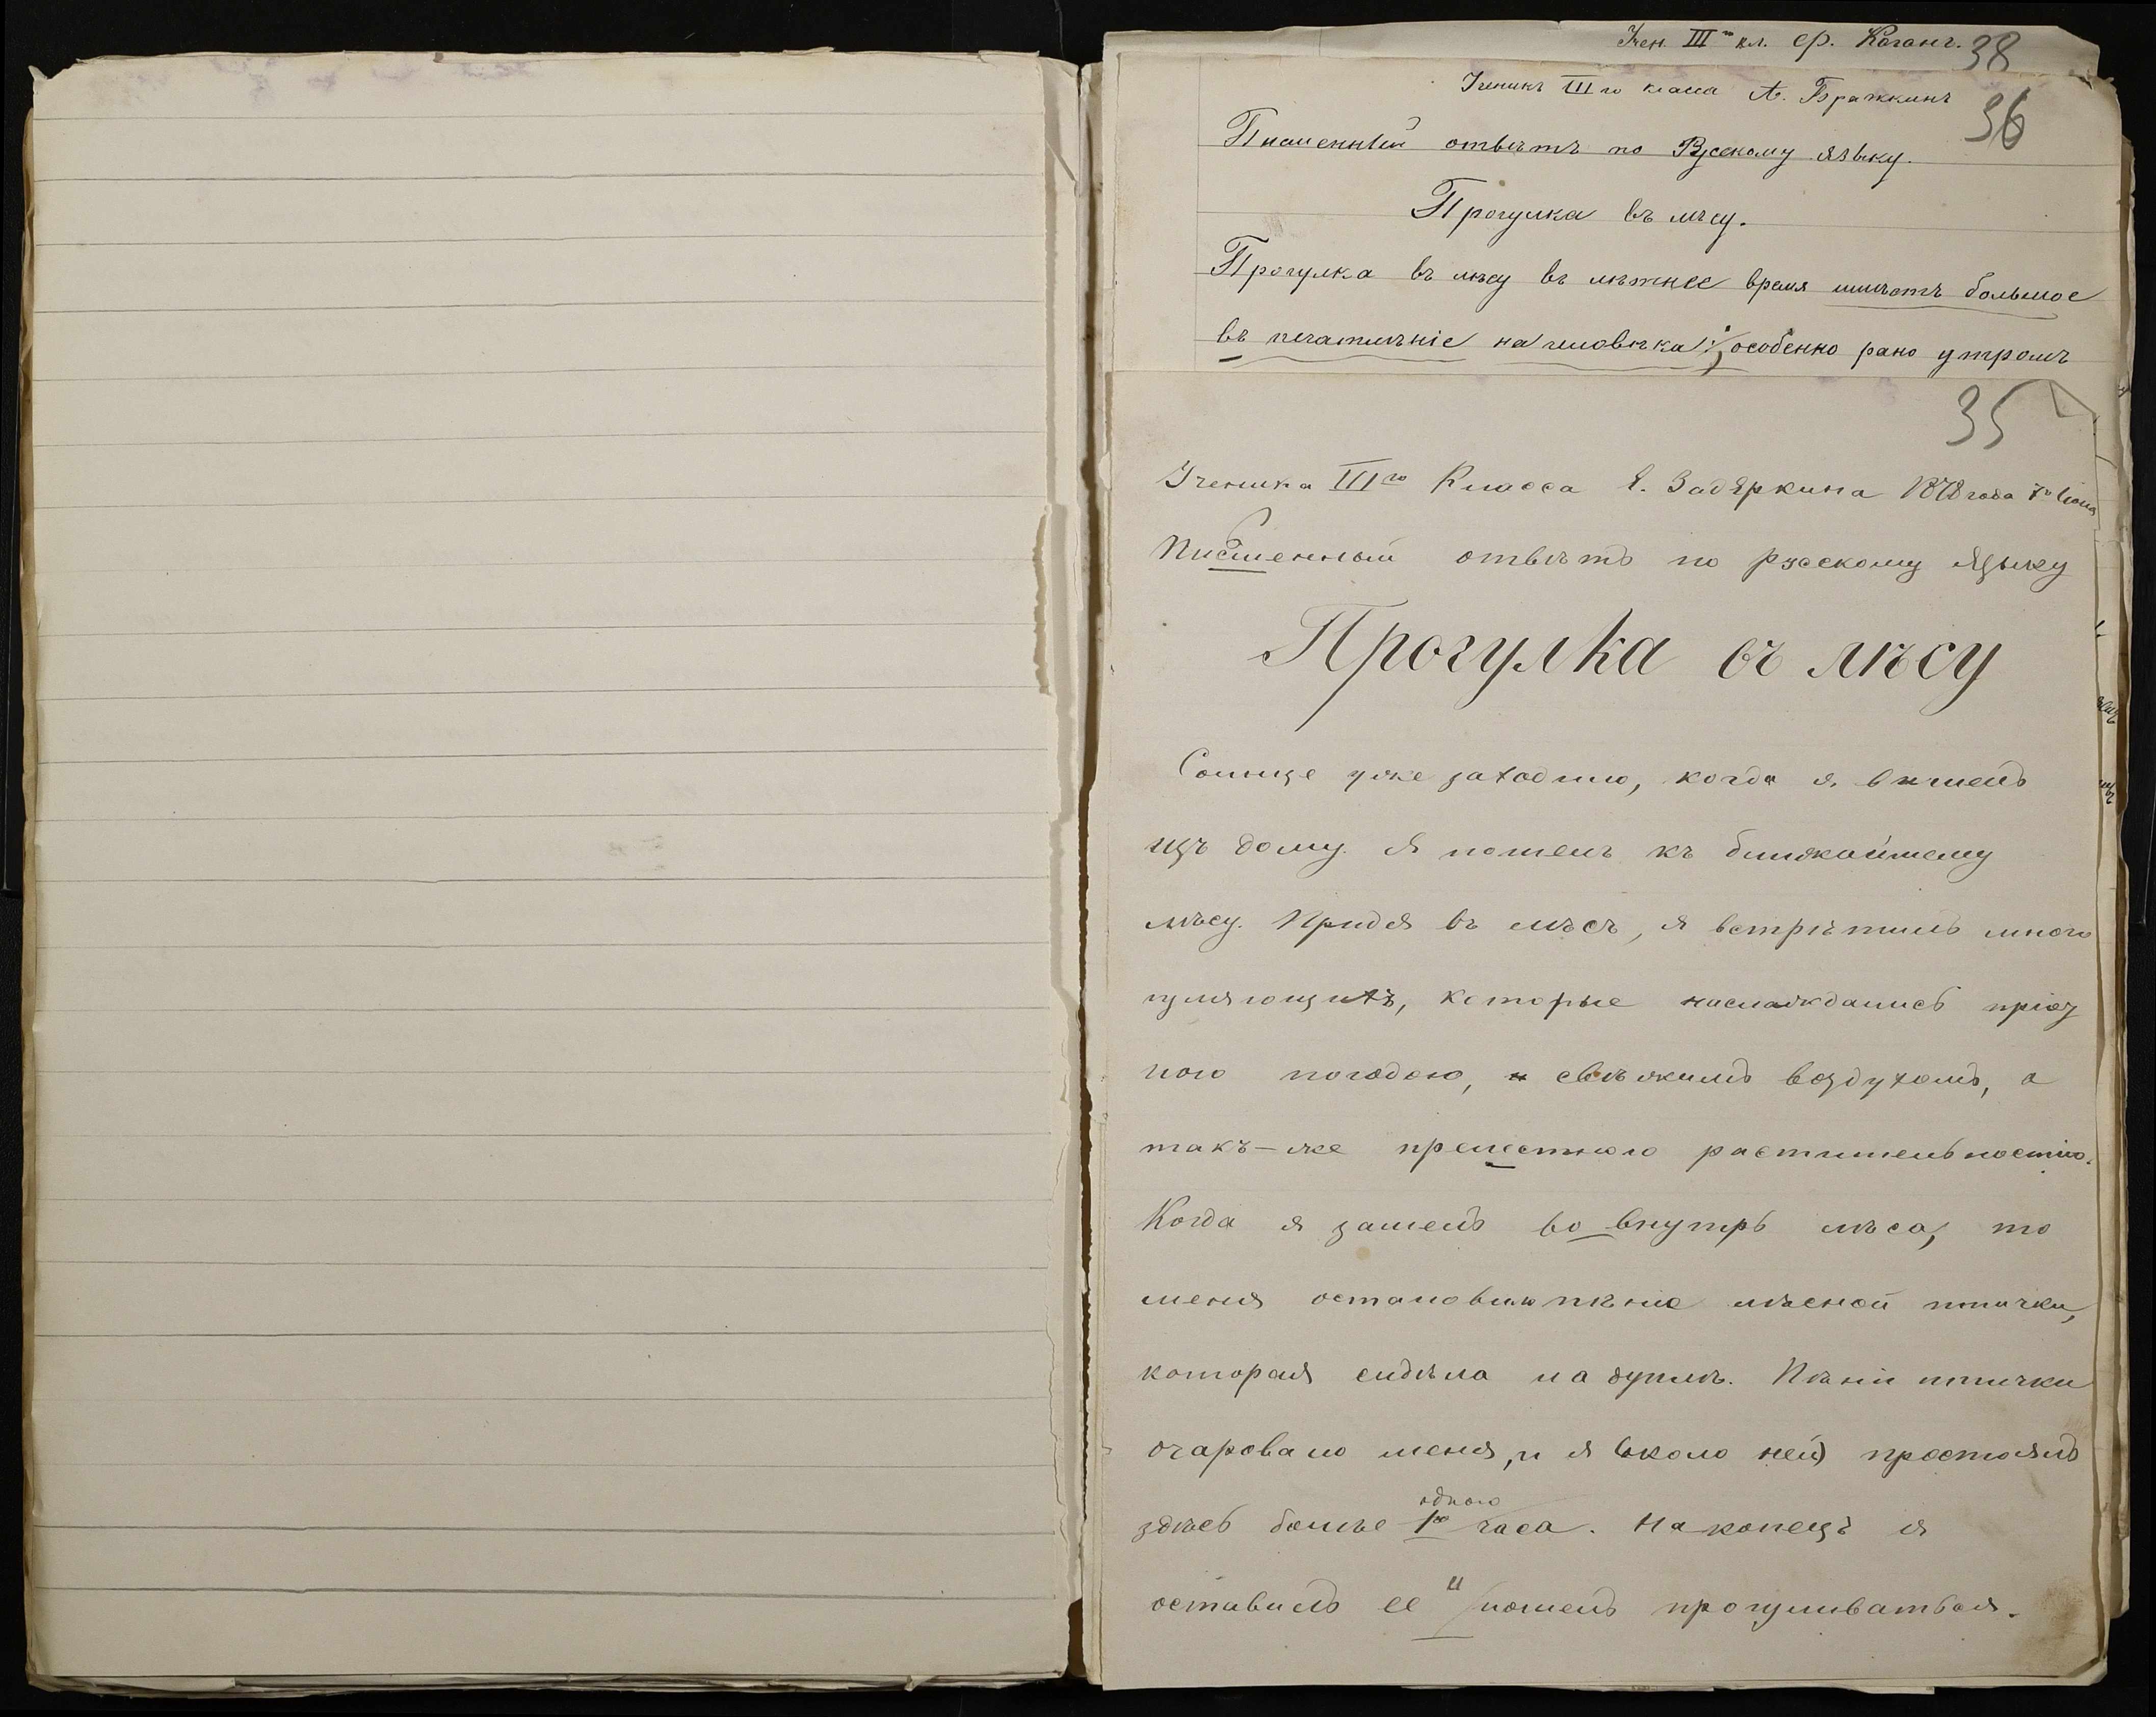 Учен. III го кл. ср. Коганъ.
38
Ученикъ III го класса А. Бражкинъ
36
Письменный отвѣтъ по Русскому языку.
Прогулка въ лѣсу.
Прогулка въ лѣсу въ лѣтнее время имѣетъ большое
въ печатлѣніе на человѣка; особенно рано утромъ
35
Ученика III го Класса Задяркина 1878 года
Письменный отвѣтъ по русскому языку
Прогулка въ лѣсу
Солнце уже заходило, когда я вышелъ
изъ дому. Я пошелъ къ ближайшему
лѣсу. Придя въ лѣсъ, я встрѣтилъ много
гуляющихъ, которые наслаждались
ною погодою, свѣжимъ воздухомъ, а
такъ-же прелестною растительностію.
Когда я зашелъ во внутрь лѣса, то
меня остановило пѣніе лѣсной птички,
которая сидѣла на дуплѣ. Пѣніе птички
очаровало меня, и я около ней простоялъ
одного
здѣсь болѣе 1го часа. Наконецъ я
оставилъ ее и пошелъ прогуливаться.